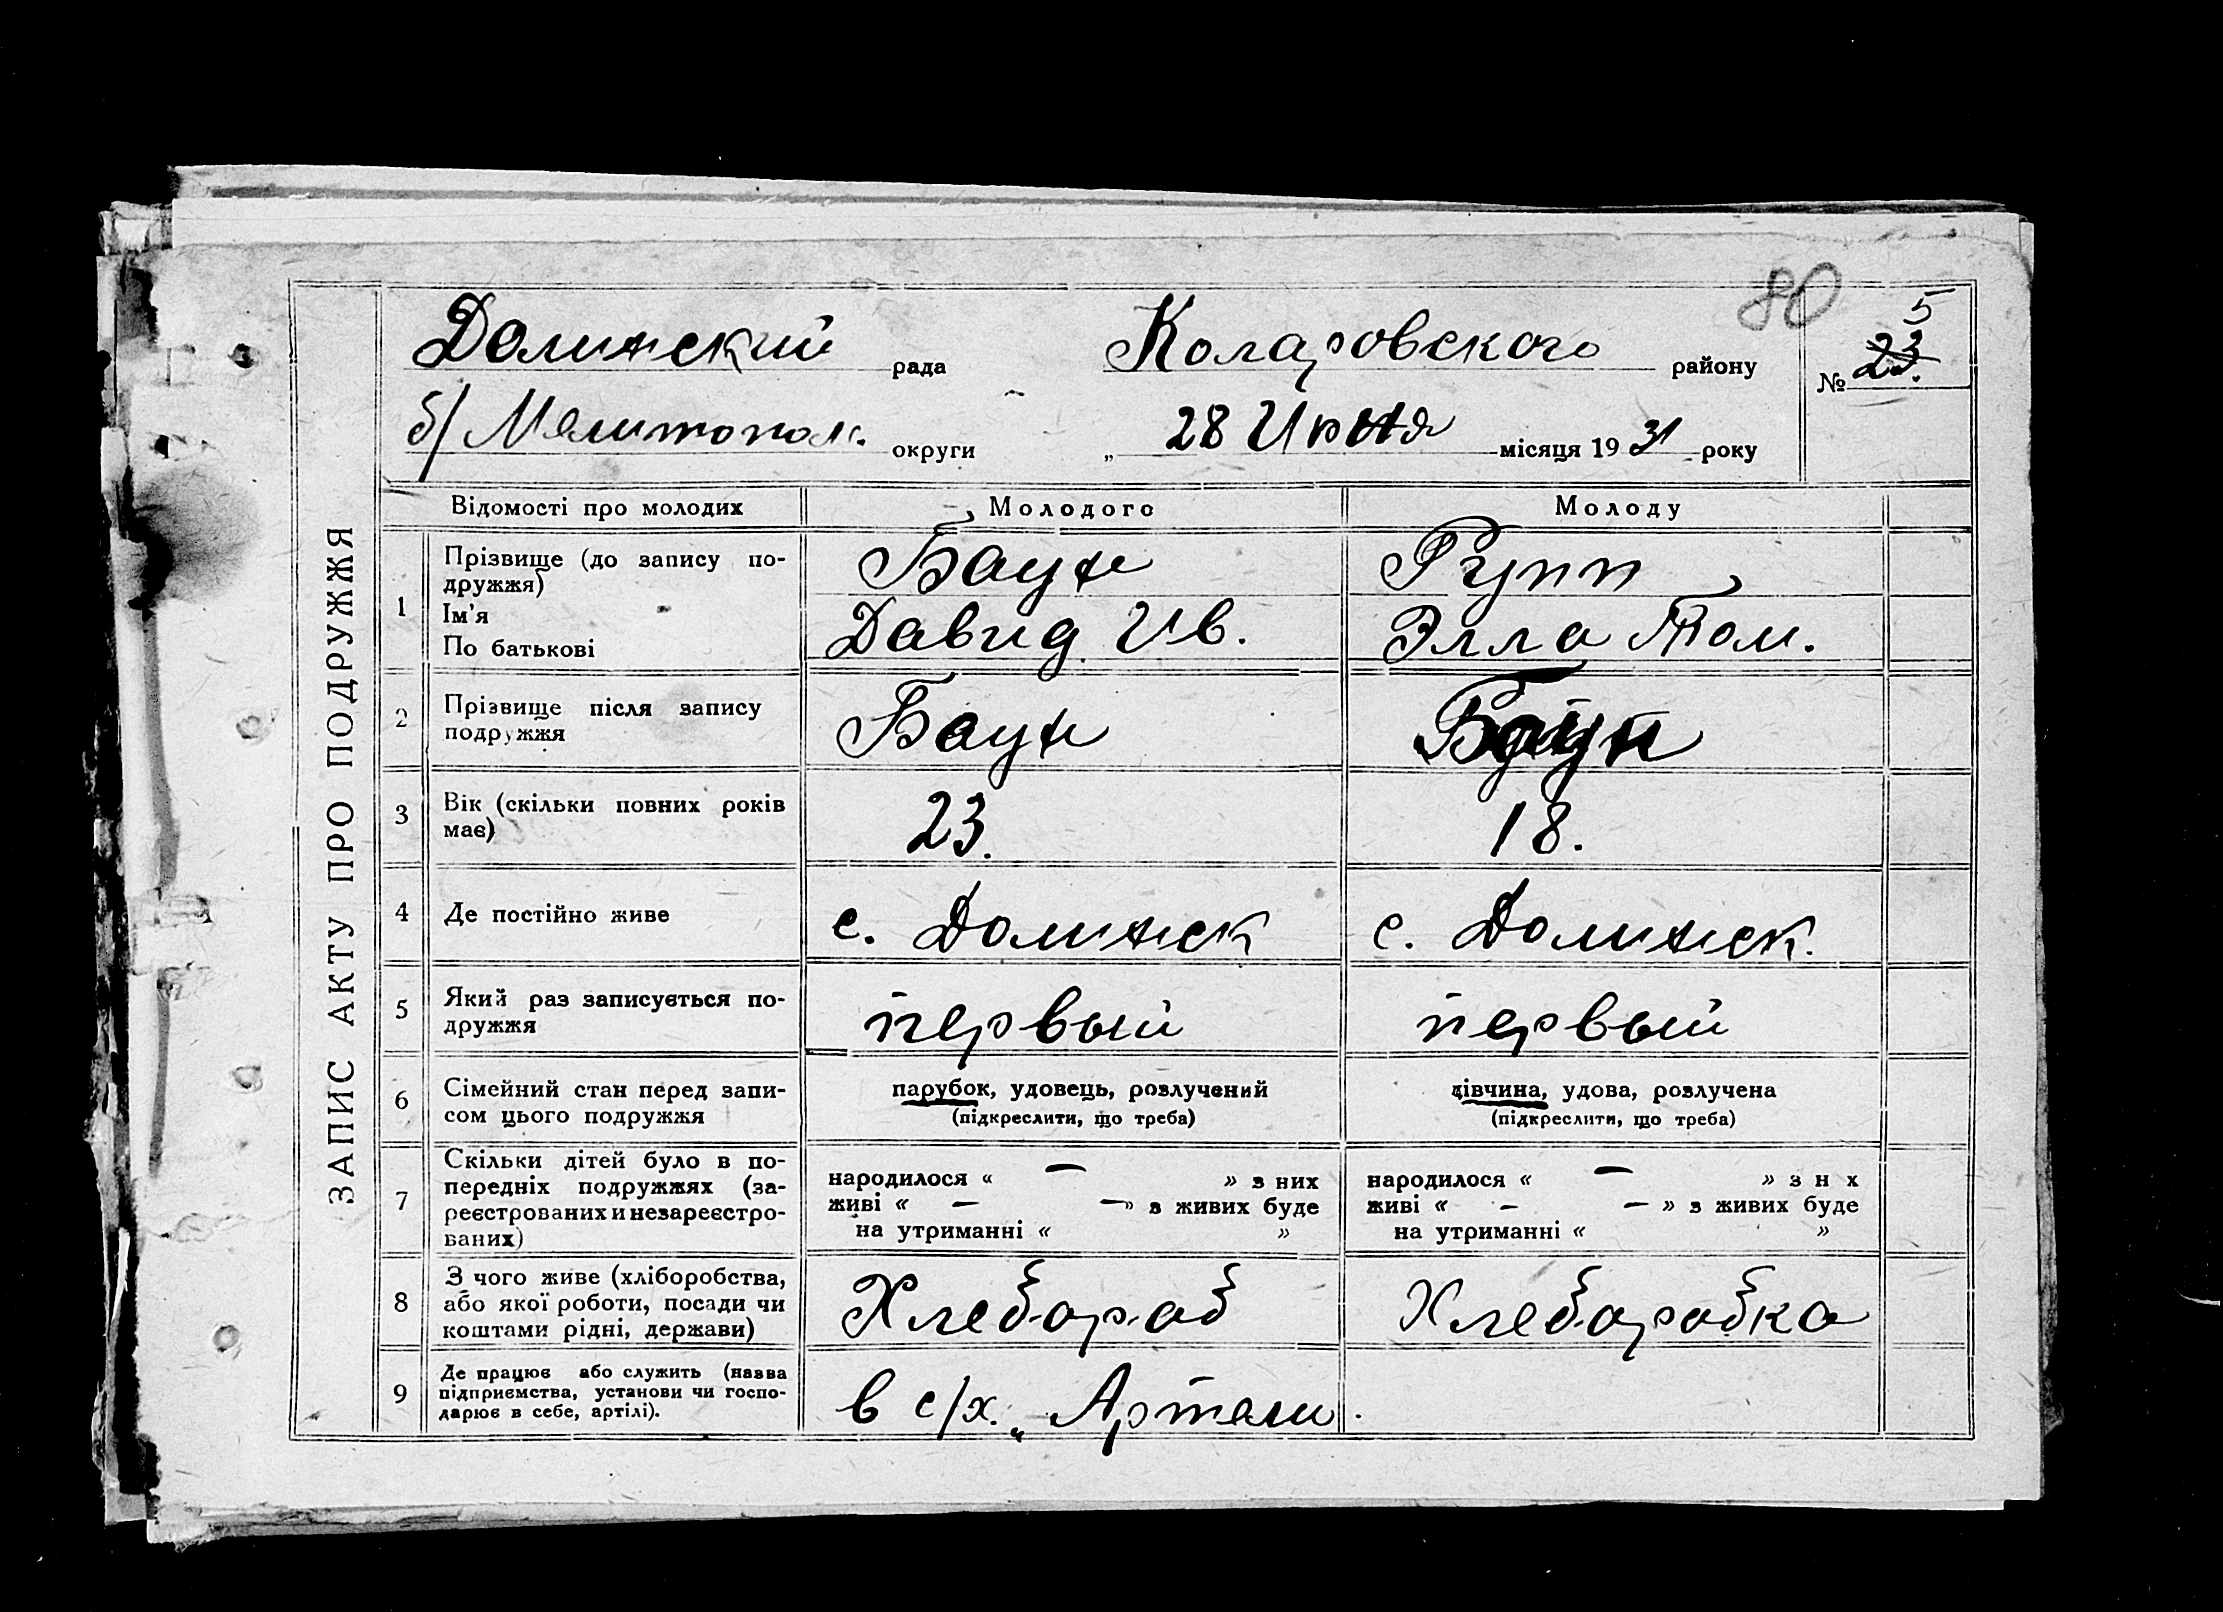 ЗАПИС АКТУ ПРО ПОДРУЖЖЯ
80
5
Долинский рада Коларовского району № 23.
б/ Мелитопол. округи „ 28 Июня місяця 19 31 року
Відомості про молодих Молодого Молоду
1 Прізвище (до запису по-
дружжя) Баун Рупп
Ім'я
По батькові Давид Ив. Элла Том.
2 Прізвище після запису
подружжя Баун Баун
3 Вік (скільки повних років
має) 23. 18.
4 Де постійно живе с. Долинск с. Долинск.
5 Який раз записується по-
дружжя первый первый
6 Сімейний стан перед запи-
сом цього подружжя
парубок, удовець, розлучений
(підкреслити, що треба)
дівчина, удова, розлучена
(підкреслити, що треба)
7 Скільки дітей було в по-
передніх подружжях (за-
реєстрованих и незареєстро-
ваних)
народилося « — » з них
живі « — —» з живих буде
на утриманні « »
народилося « — » з н х
живі « — — » з живих буде
на утриманні « »
8 З чого живе (хліборобства,
або якої роботи, посади чи
коштами рідні, держави) Хлебороб Хлеборобка
9 Де працює або служить (назва
підприємства, установи чи госпо-
дарює в себе, артілі). в с/х. „ Артели.